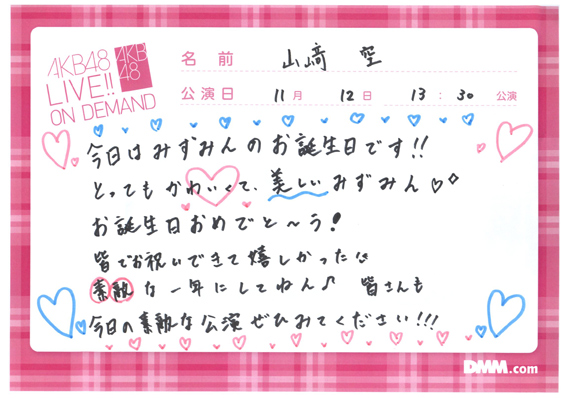 AKB48
LIVE!!
ON DEMAND
AKB
48
名前 山﨑 空
公演日 11月 12日 13:30 公演
今日はみずみんのお誕生日です!!
とってもかわいくて、美しいみずみん♡◇
お誕生日おめでと〜う!
皆でお祝いできて嬉しかった
素敵な一年にしてねん♪ 皆さんも
今日の素敵な公演ぜひみてください!!!
DMM.com